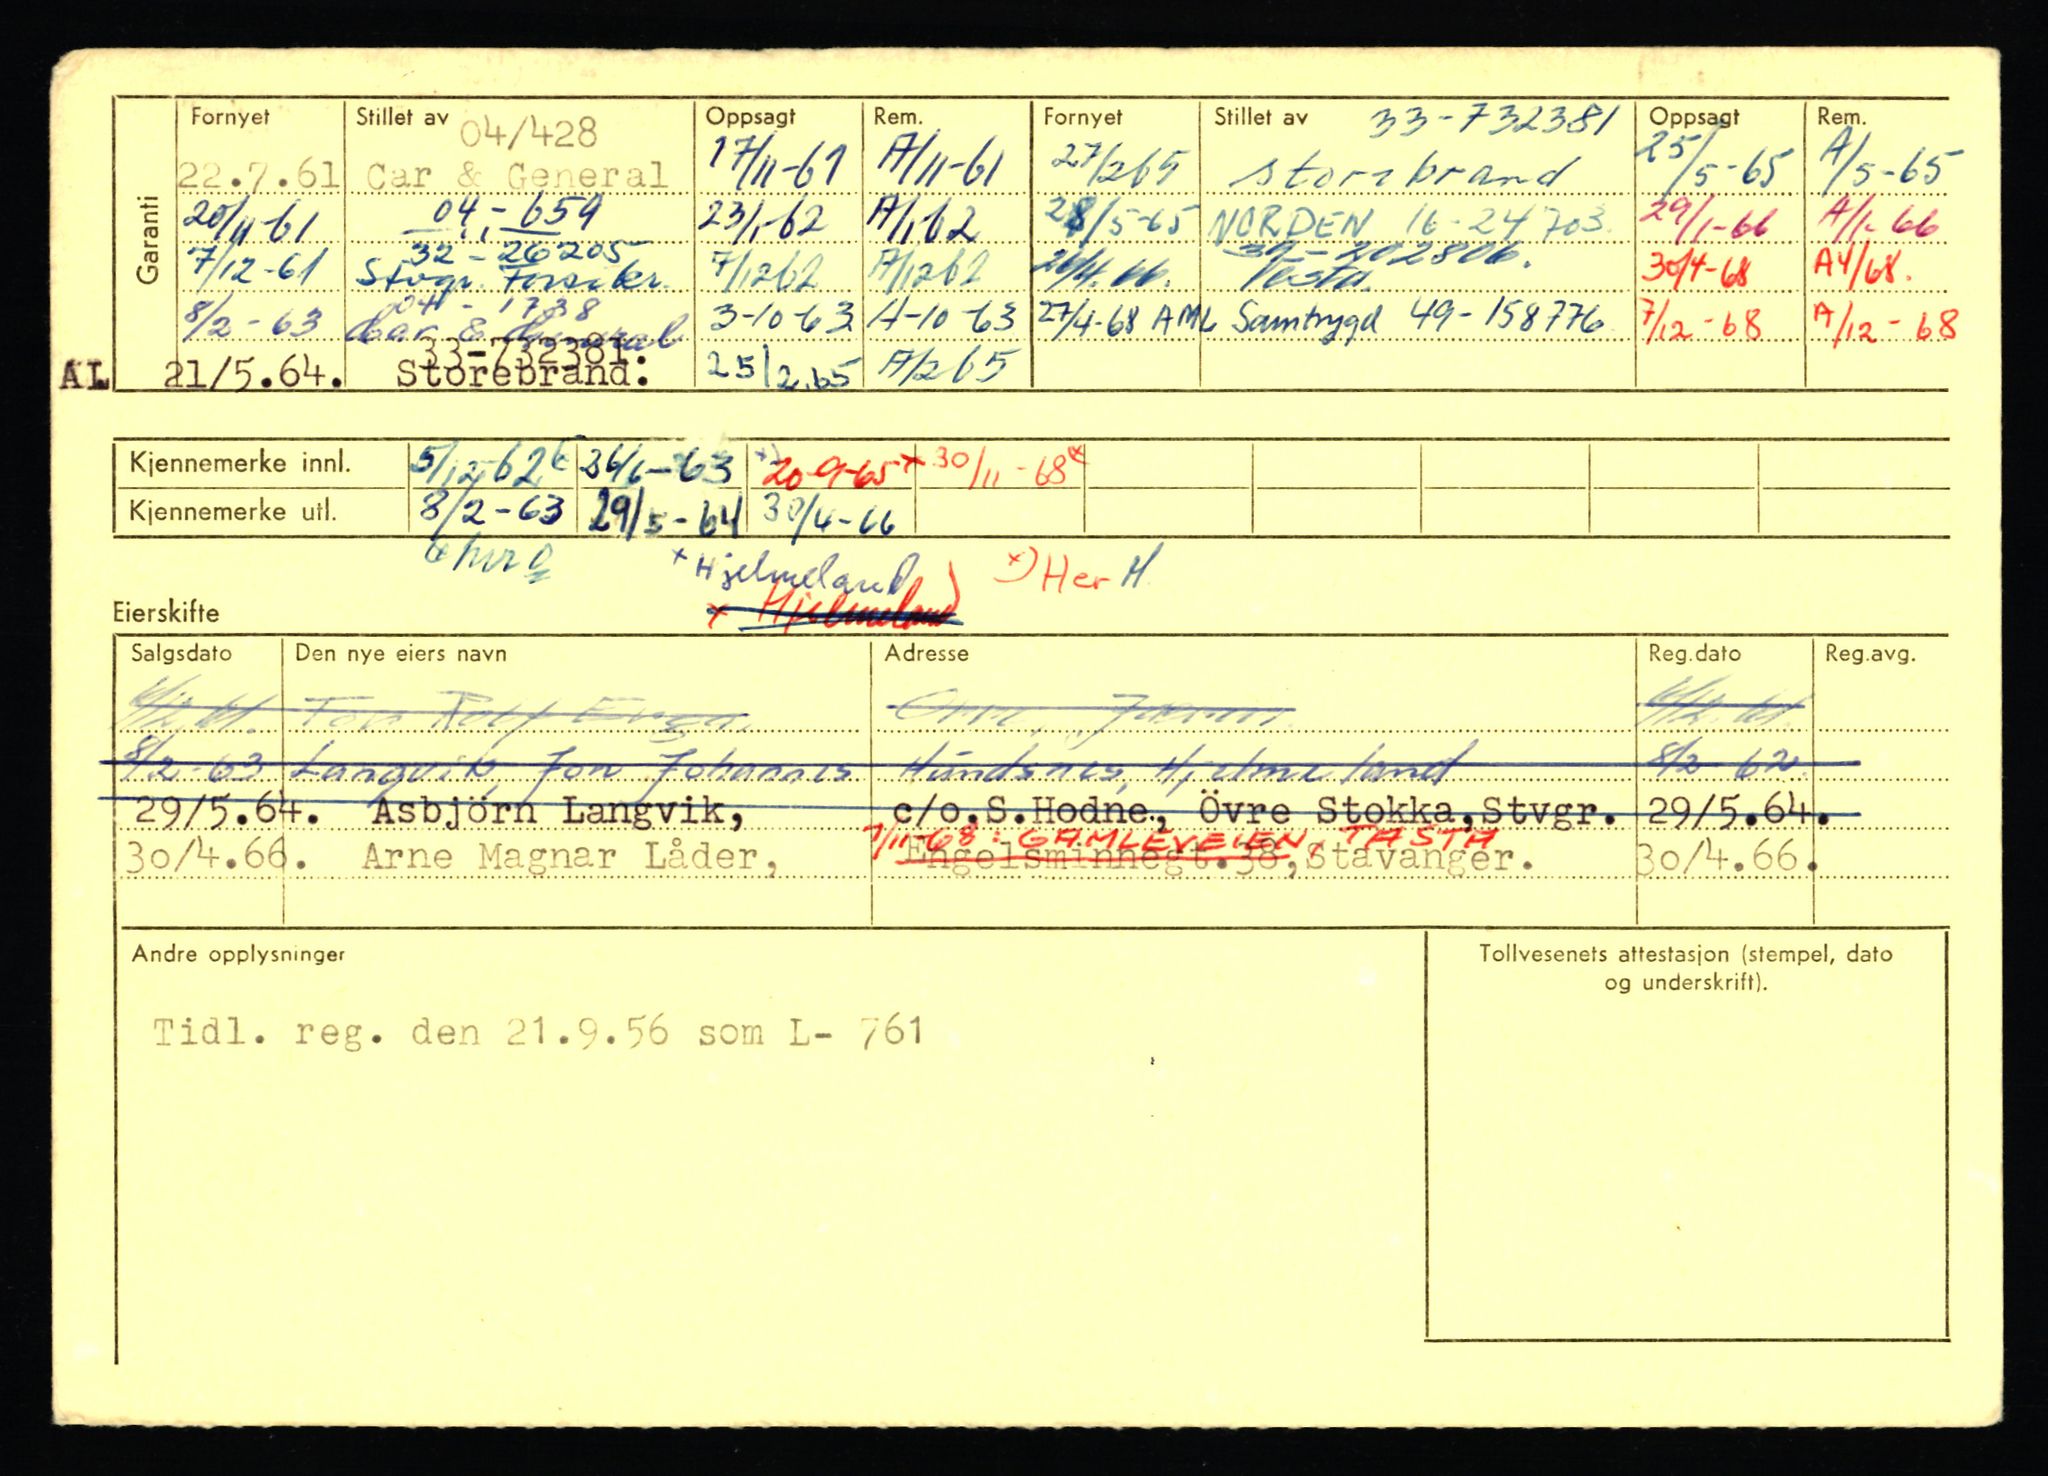 Garanti
Fornyet Stillet av Oppsagt Rem. Fornyet Stillet av 33-732381 Oppsagt Rem.
04/428
22.7.61 Car & General 17/11-61 A/11-61 27/265 Storebrand 25/5-65 A/5-65
20/11-61 04.-659 23/1-62 A/162 28/5-65 NORDEN 16-24703. 29/1-66 A/1-66
32-26205 39-202806.
7/12-61 Stvgr. Forsikr. 7/1262 A/1262 26/4.66. Vesta. 30/4-68 A4/68.
04-1738
8/2-63 Car & General 3-10-63 A-10-63 27/4-68 AML Samtrygd 49-158776 7/12-68 A/12-68
33-732381.
AL 21/5.64. Storebrand. 25/2.65 A/265
Kjennemerke innl. 5/12-62 26/6-63 x) 20-9-65 x 30/11-68 x
Kjennemerke utl. 8/2-63 29/5-64 30/4-66
x Hjelmeland x) Her H.
x Hjelmeland)
Eierskifte
Salgsdato Den nye eiers navn Adresse Reg.dato Reg.avg.
8/2-63 Langvik, Jon Johannes Hundsnes, Hjelmeland 8/2 62.
29/5.64. Asbjörn Langvik, c/o.S.Hodne, Övre Stokka,Stvgr. 29/5.64.
7/11-68: GAMLEVEIEN, TASTA
30/4.66. Arne Magnar Låder, Engelsminnegt.38,Stavanger. 30/4.66.
Andre opplysninger
Tollvesenets attestasjon (stempel, dato
og underskrift).
Tidl. reg. den 21.9.56 som L- 761